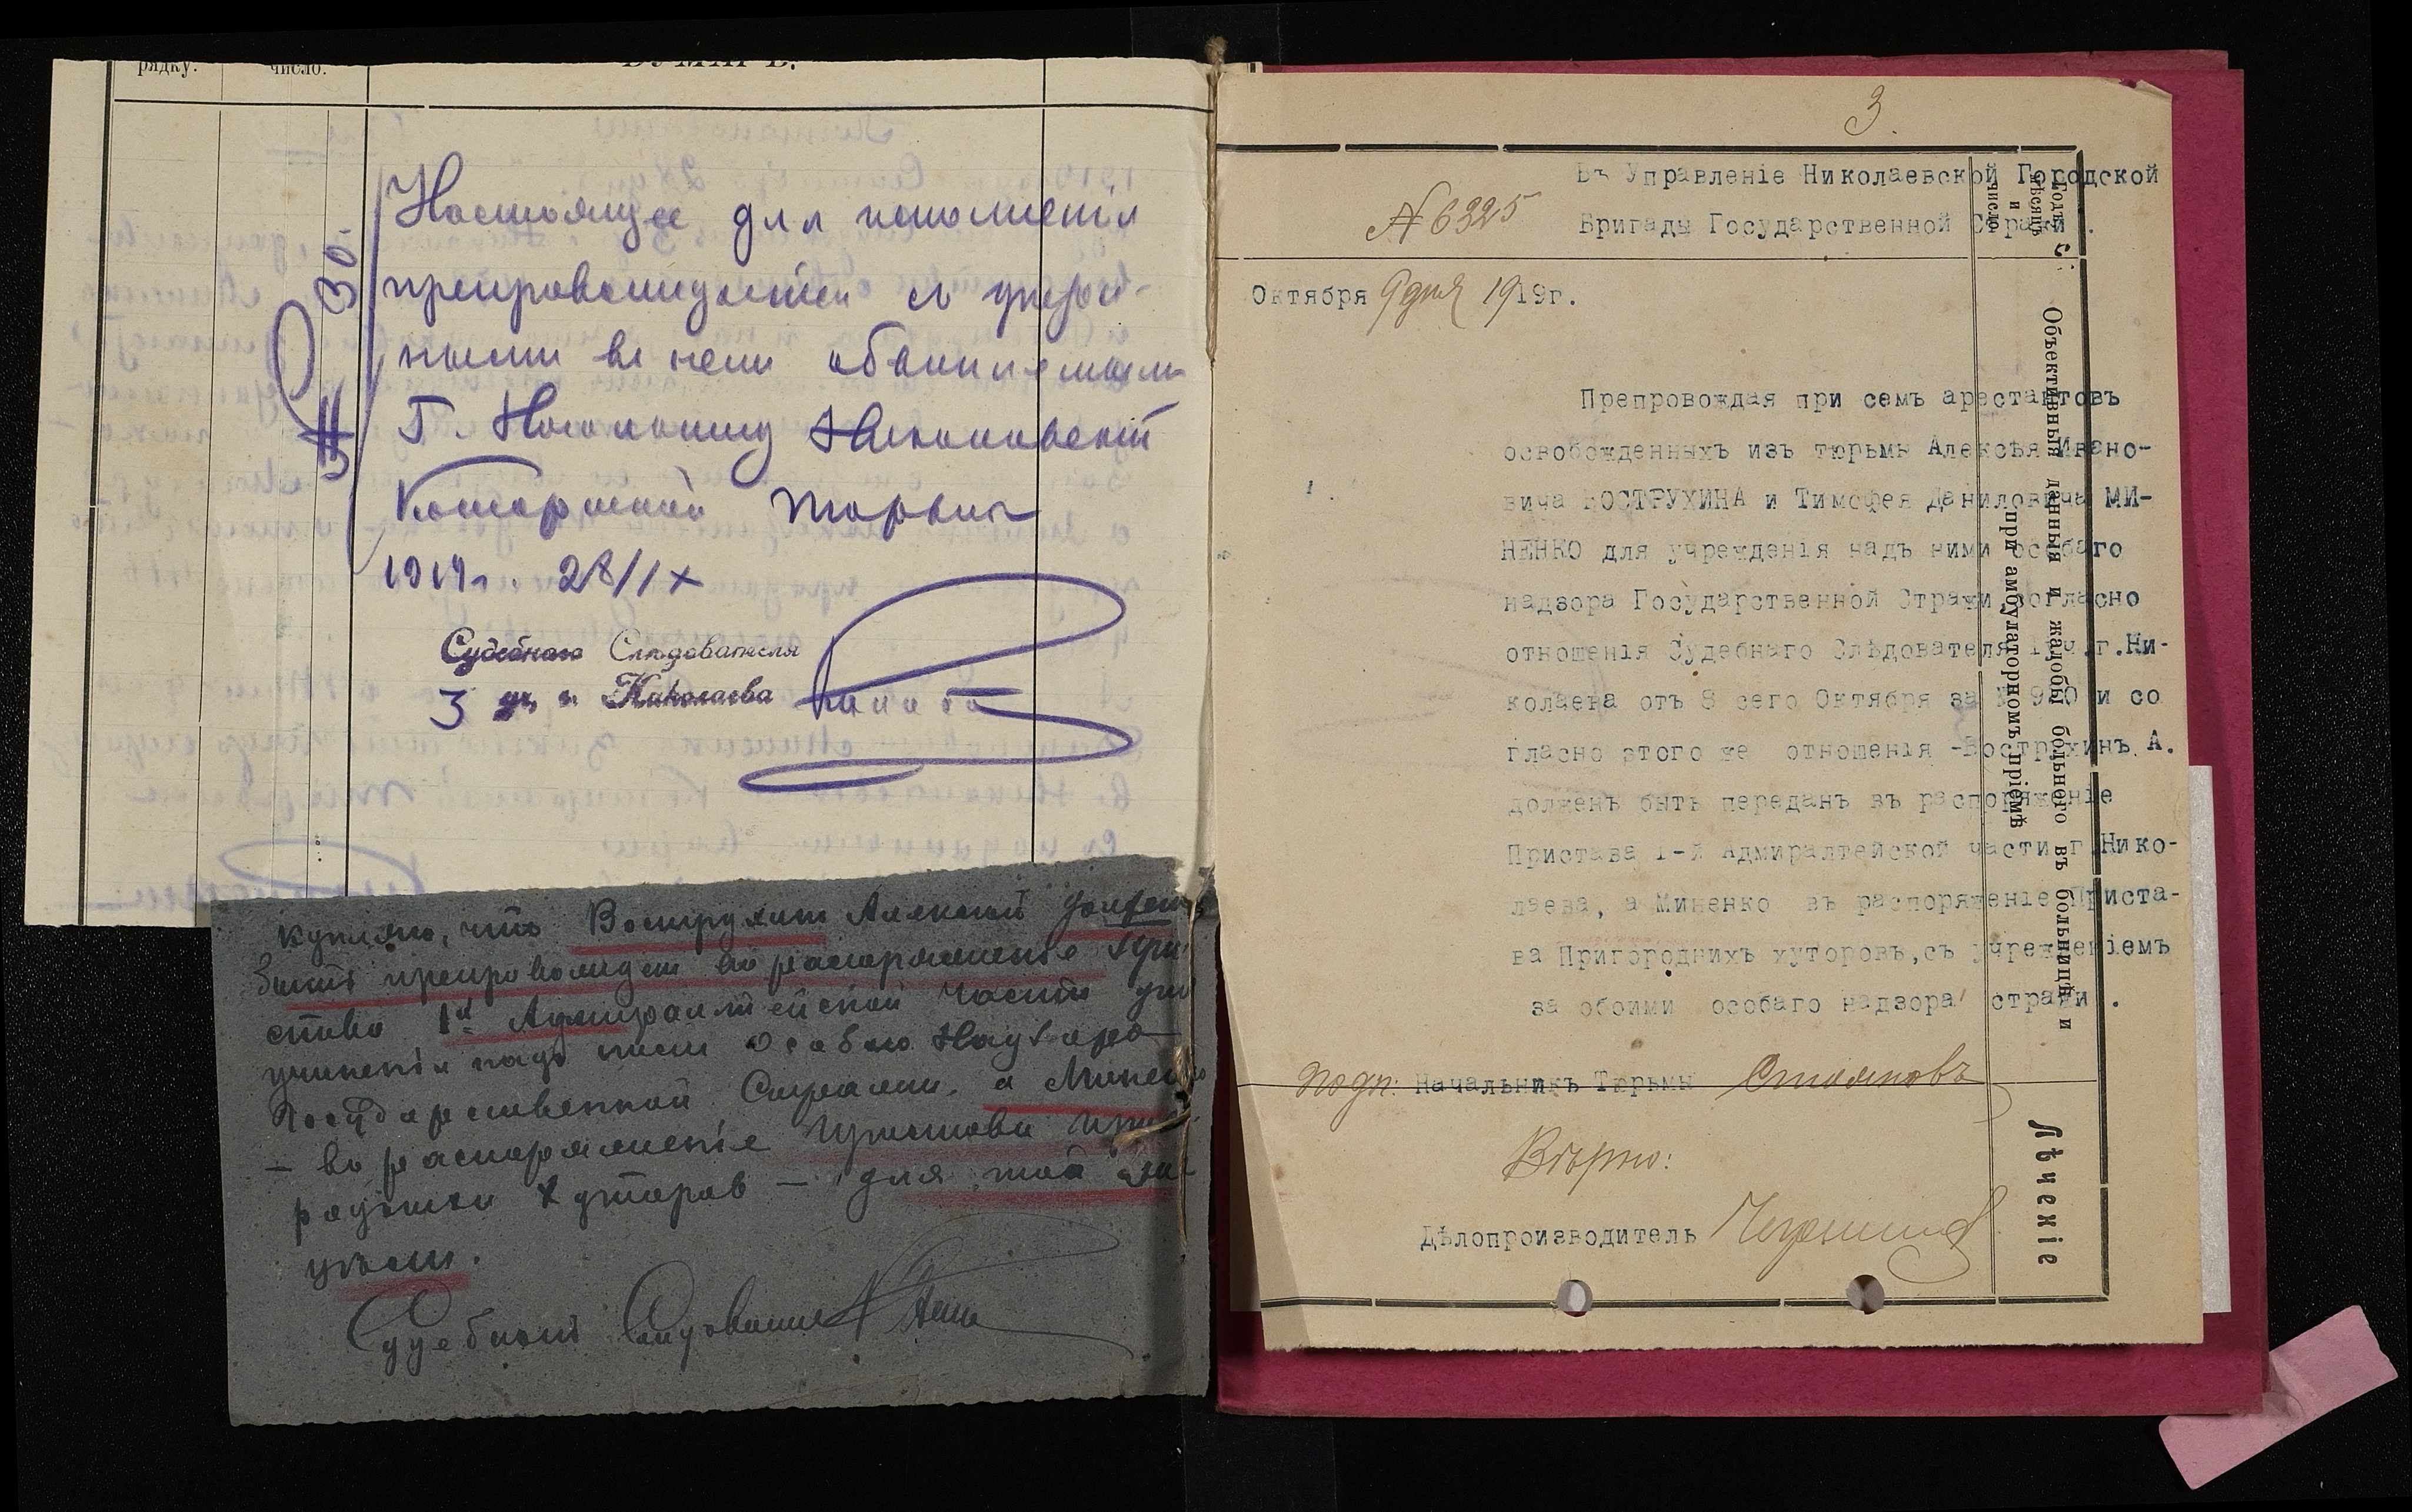 рядку.
число.
БУМАГЪ.
№ 30.
Настоящее для исполненія
препровождается
въ нем обвиняемым
Г. Начальнику Николаевской
Каторжной тюрьмы
1919 г. 28/IX
Судебнаго Слѣдователя
3 уч. г. Николаева
купляю, что Вострухинъ Алексѣй долженъ
быть препровожденъ въ распоряженіе При-
става 1й Адмиралтейской части для
учиненія надъ ним особаго надзора
Государственной Стражи, а Миненко
— въ распоряженіе Пристава Приго-
родних хуторов — для той же
цѣли.
Судебный Слѣдователь
3.
Въ Управленіе Николаевской Городской
Бригады Государственной Стражи.
№ 6325
Октября 9 дня 1919г.
Препровождая при семъ арестантовъ
освобожденныхъ изъ тюрьмы Алексѣя Ивано-
вича ВОСТРУХИНА и Тимофея Даниловича МИ-
НЕНКО для учрежденія надъ ними особаго
надзора Государственной Стражи, согласно
отношенія Судебнаго Слѣдователя г. Ни-
колаева отъ 8 сего Октября за № и со
гласно этого же отношенія -Вострухинъ А.
долженъ быть переданъ въ распоряженіе
Пристава 1-й Адмиралтейской части г. Нико-
лаева, а Миненко въ распоряженіе Приста-
ва Пригороднихъ хуторовъ, съ учрежденіемъ
за обоими особаго надзора стражи.
подп: Начальникъ Тюрьмы Стояновъ
Вѣрно:
Дѣлопроизводитель
Годъ,
мѣсяцъ
и
число
Объективныя данныя и жалобы больного въ больницѣ и
при амбулаторномъ пріемѣ
Лѣченіе